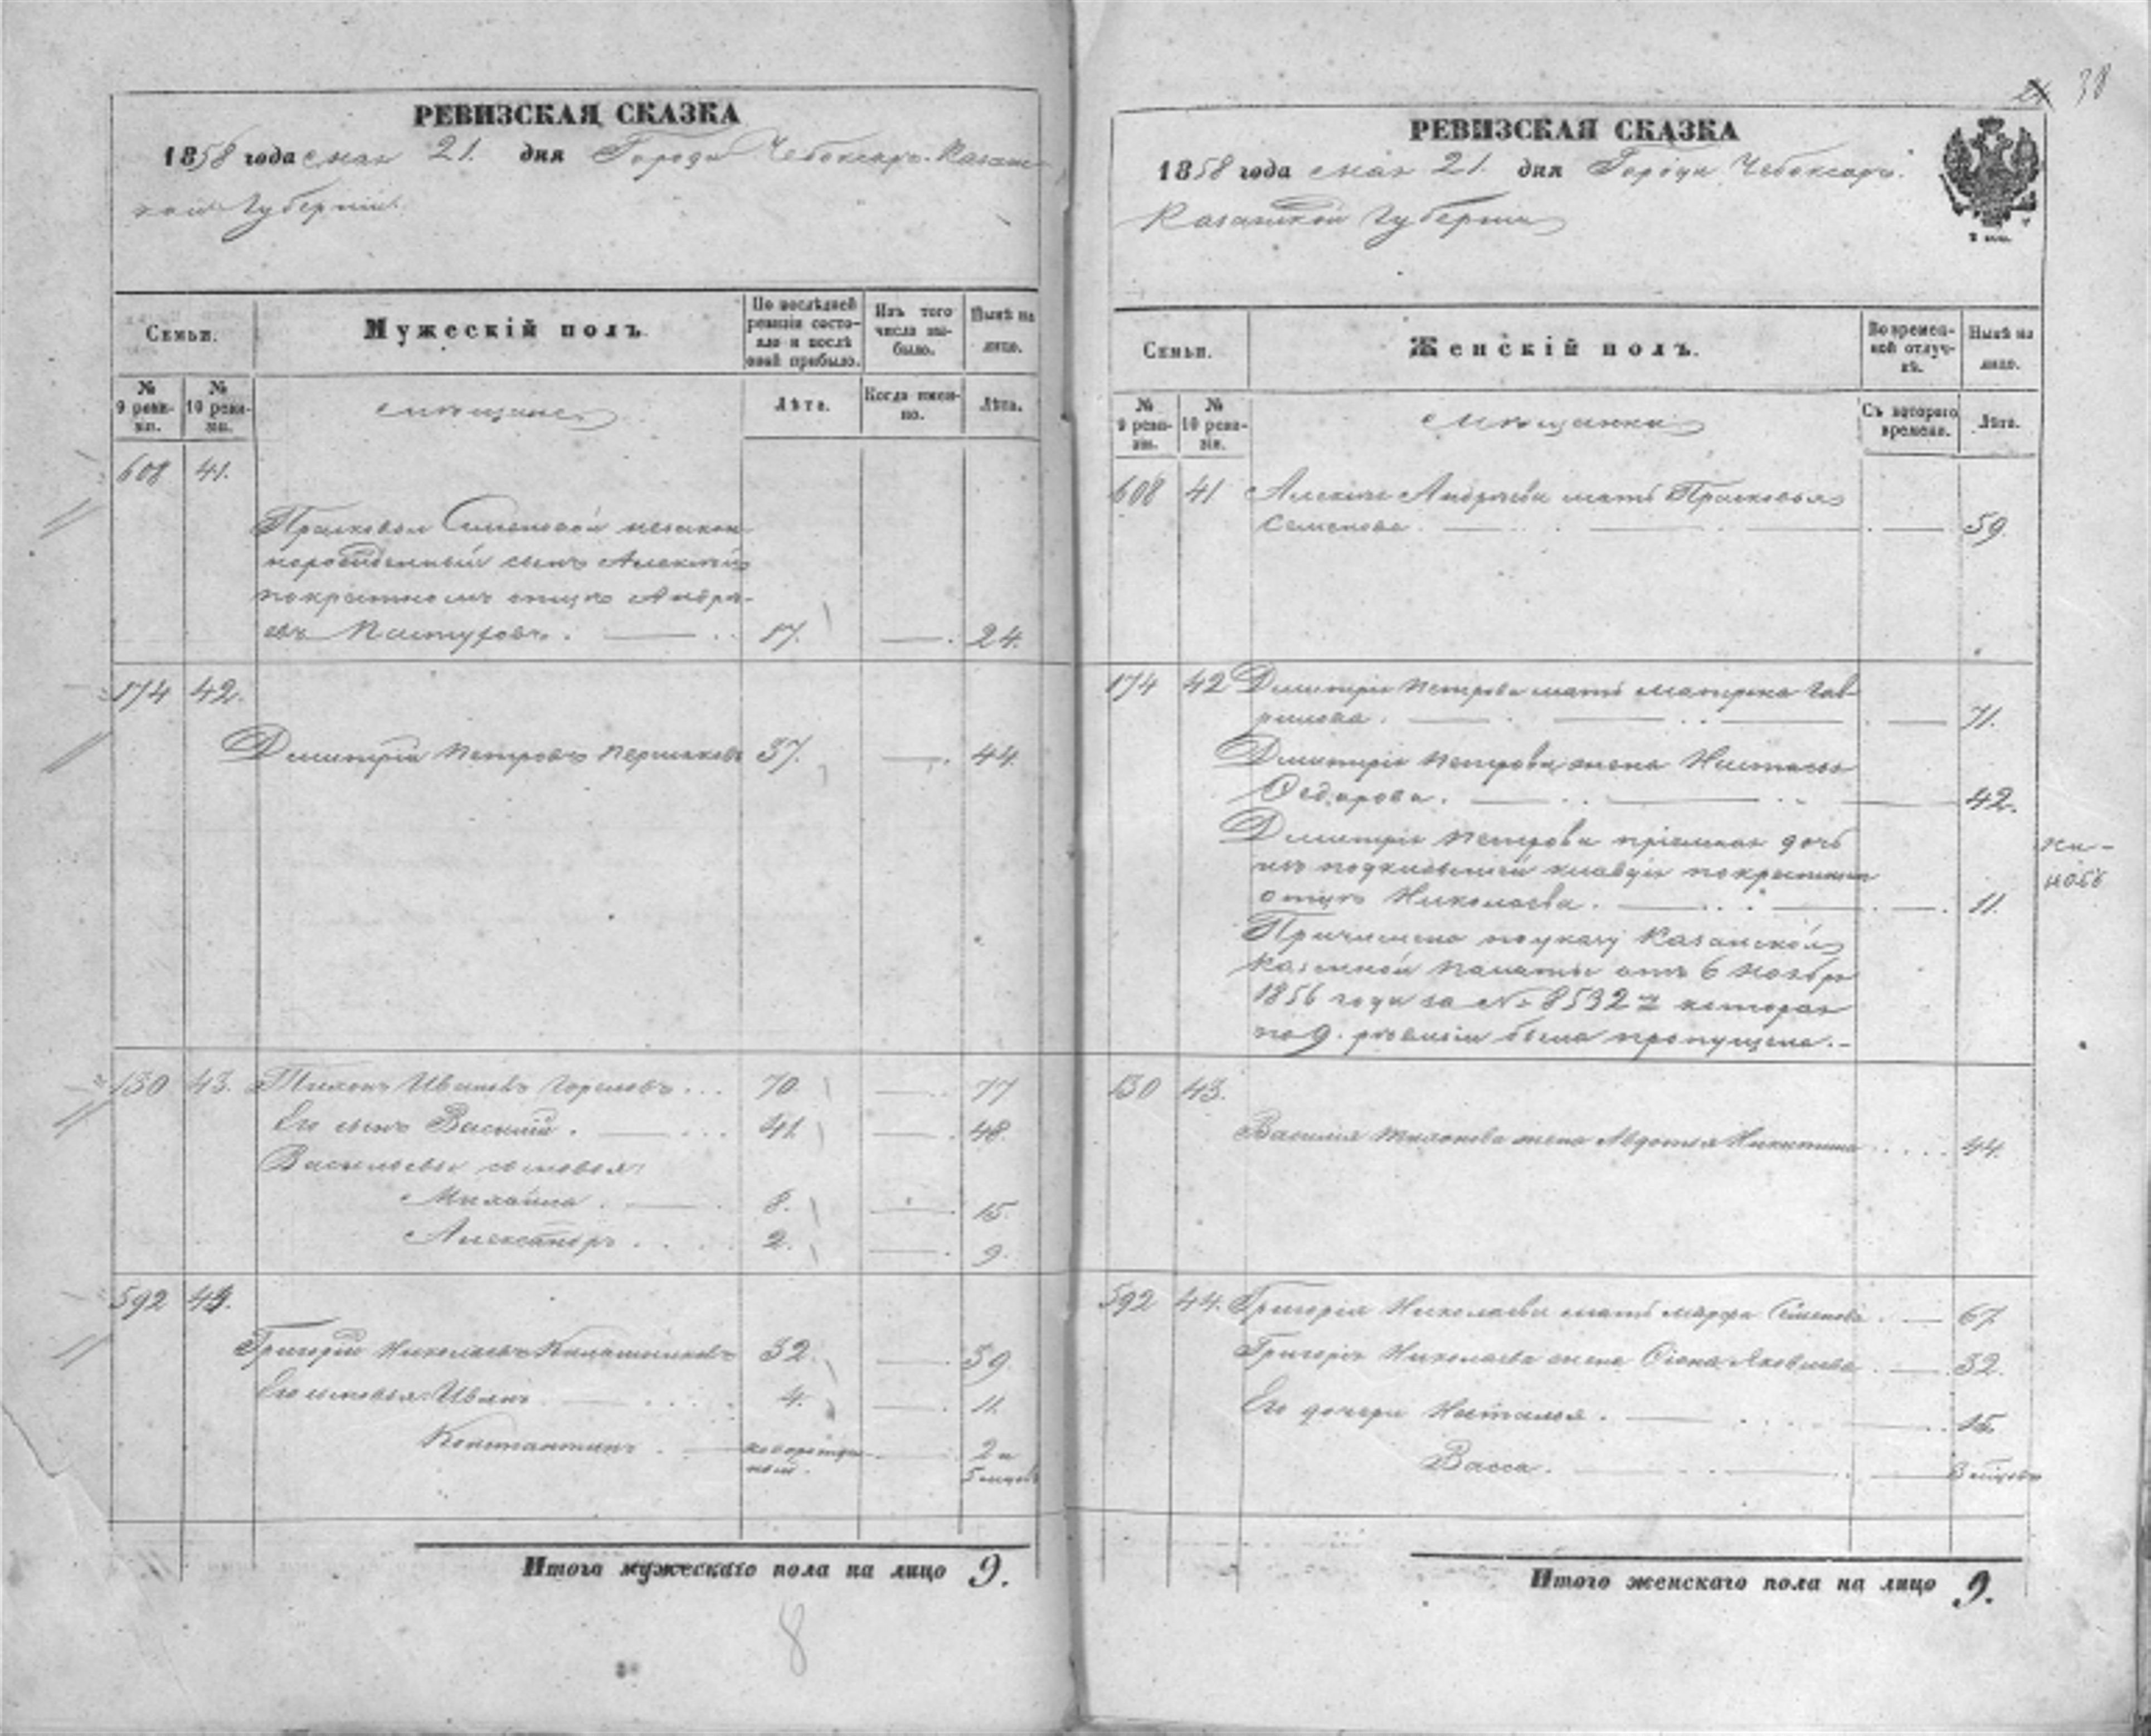 РЕВИЗСКАЯ СКАЗКА
1858 года мая 21. дня Города Чебоксаръ Казан
ской Губерніи.
Семьи.
Мужескій полъ.
По послѣдней ревизіи состояло и послѣ оной прибыло.
Изъ того числа выбыло.
Нынѣ на лицо.
№ 9 ревизіи.
№ 10 ревизіи.
мѣщане
Лѣта.
Когда именно.
Лѣта.
608 41.
Прасковьи Семеновой незакон
норожденный сынъ Алексѣй
по крестному отцу Андре-
евъ . 17. 24.
174 42.
Дмитрій Петровъ 37. 44.
130 43. Тихонъ Ивановъ Гореловъ 70. 77
Его сынъ Василій . 41. 48.
Васильевы сыновья:
Михайла . 8. 15.
Александръ . 2. 9.
592 44.
Григорій Николаевъ 32. 39.
Его сыновья: Иванъ 4. 11.
Константинъ . новорожден-
ный. 2 и
5 мцовъ
Итого мужескаго пола на лицо 9.
8
38
РЕВИЗСКАЯ СКАЗКА
1858 года мая 21. дня Города Чебоксаръ.
Казанской Губерніи
Семьи.
Женскій полъ.
Во временной отлучкѣ.
Нынѣ на лицо.
№ 9 ревизіи.
№ 10 ревизіи.
мѣщанки
Съ котораго времени.
Лѣта.
608 41 Алексѣя Андреева мать Прасковья
Семенова. 59.
174 42 Дмитрія Петрова мать Матрена Гав-
рилова . 71.
Дмитрія Петрова жена Настасья
Федорова. 42.
Дмитрія Петрова пріемная дочь
изъ подкидышей Клавдія по крестному
отцу Николаева . 11.
Причислена по указу Казанской
Казенной Палаты отъ 6 Ноября
1856 года за № 8532 которая
по 9. ревизіи была пропущена.-
130 43.
Василія Тихонова жена Авдотья Никитина 44.
592 44. Григорія Николаева мать Марфа Семенова . 67.
Григорія Николаева жена Яковлева . 32.
Его дочери Наталья . 15.
Васса . 3 мцовъ
Итого женскаго пола на лицо 9.